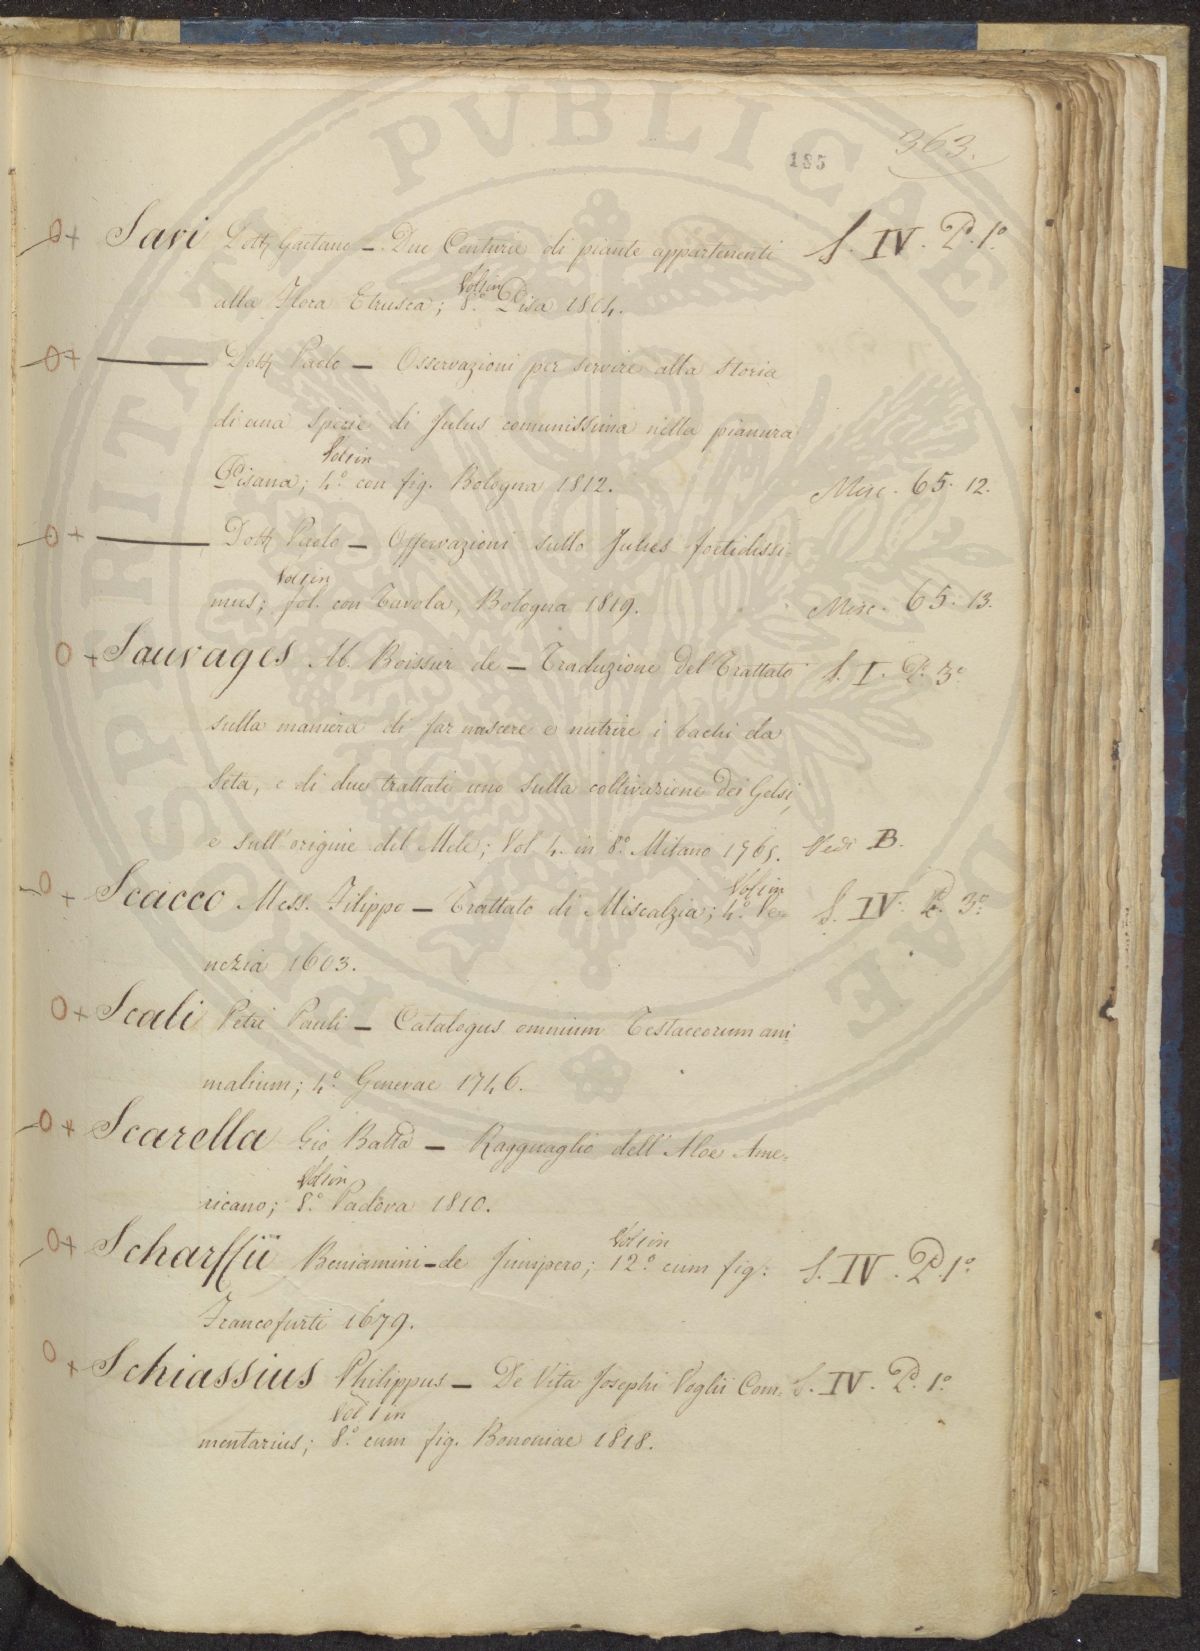 363.
185
Savi Dott. Gaetano — Due Centurie di piante appartenenti S. IV. P. 1º
alla Flora Etrusca; Vol 1 in 8.º Pisa 1804.
Dott. Paolo — Osservazioni per servire alla storia
di una specie di Julus comunissima nella pianura
Pisana; Vol 1 in 4.º con fig. Bologna 1812. Misc. 65. 12.
Dott. Paolo — Osservazioni sullo Julus foetidissi=
mus; Vol 1 in fol. con Tavola, Bologna 1819. Misc. 65. 13.
Sauvages M. Boissier de — Traduzione del Trattato S. I. P. 3º
sulla maniera di far nascere e nutrire i bachi da
Seta, e di due trattati uno sulla coltivazione dei Gelsi,
e sull'origine del Mele; Vol 4. in 8.º Milano 1765. Vedi B.
Scacco Mess. Filippo — Trattato di Miscalzia; Vol 1 in 4.º Ve= S. IV. P. 3º
nezia 1603.
Scali Petri Pauli — Catalogus omnium Testaceorum ani=
malium; 4.º Genevae 1746.
Scarella Gio Batta — Ragguaglio dell'Aloe Ame=
ricano; Vol 1 in 8.º Padova 1810.
Scharffii Beniamini — de Junipero; Vol 1 in 12.º cum fig: S. IV. P. 1º
Francofurti 1679.
Schiassius Philippus — De Vita Josephi Voglii Com= S. IV. P. 1º
mentarius; Vol 1 in 8.º cum fig. Bononiae 1818.